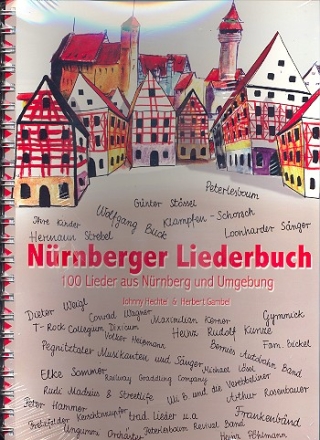 Peterlesboum
Günter Stössel
Ihre Kinder Wolfgang Buck Klampfen-Schorsch
Hermann Strebel Loonharder Sänger
Nürnberger Liederbuch
100 Lieder aus Nürnberg und Umgebung
Johnny Hechtel & Herbert Gambel
Dieter Weigl Conrad Wagner Maximilian Kerner Gymmick
T-Rock Collegium Dixicum Volker Heißmann Heinz Rudolf Kunze Fam. Bickel
Pegnitztaler Musikanten und Sänger Bernies Autobahn Band
Elke Sommer Railway Gradeling Company Michael Lösel
Rudi Madsius & Streetlife Uli B. und die Arthur Rosenbauer
Peter Hammer trad. Lieder u.a. Frankenbänd
Ungumm Orchester Peterlesboum Revival Band Heinz Pöhlmann